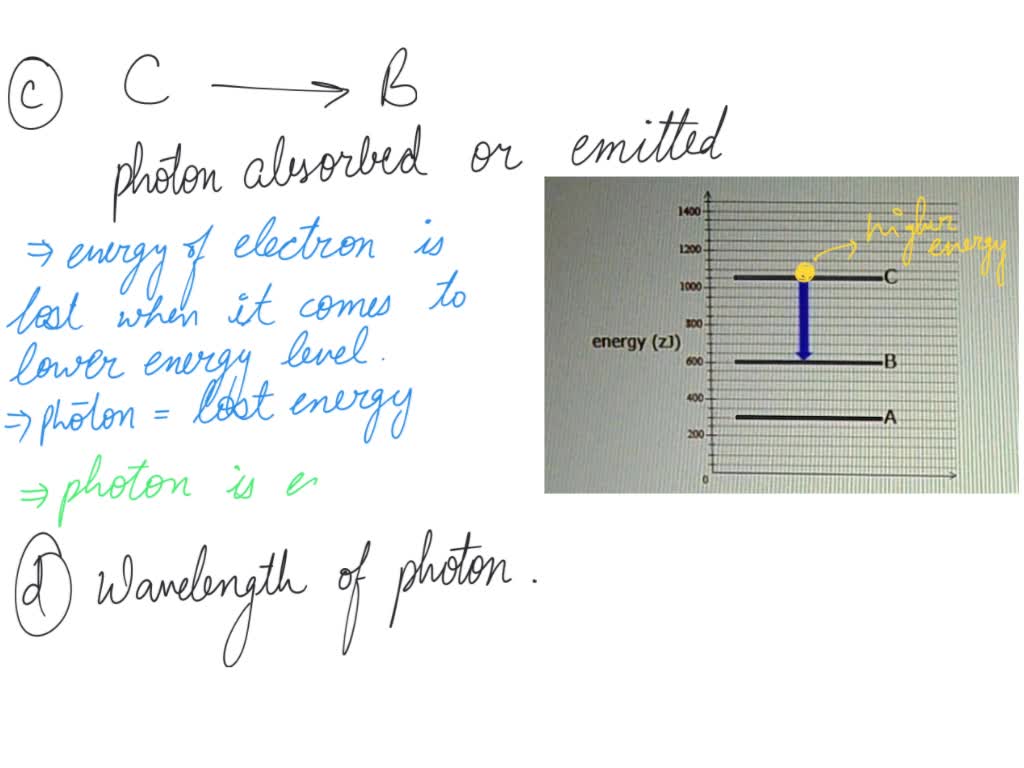 c C → B
photon absorbed or emitted
⇒ energy of electron is
lost when it comes to
lower energy level.
⇒ photon = lost energy
⇒ photon is e
d Wavelength of photon.
higher
energy
1400
1200
1000
C
800
energy (zJ)
600
B
400
A
200
0